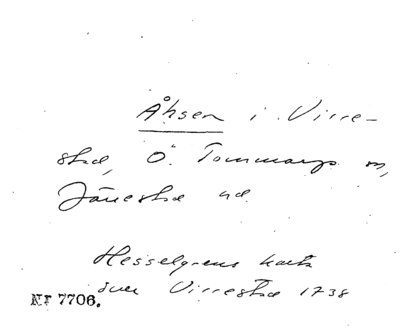 Åhsen i Virre-
sta, Ö. Tommarps sn,
Järesta hd
Hesselgrens karta
över Virresta 1738
Nr 7706.